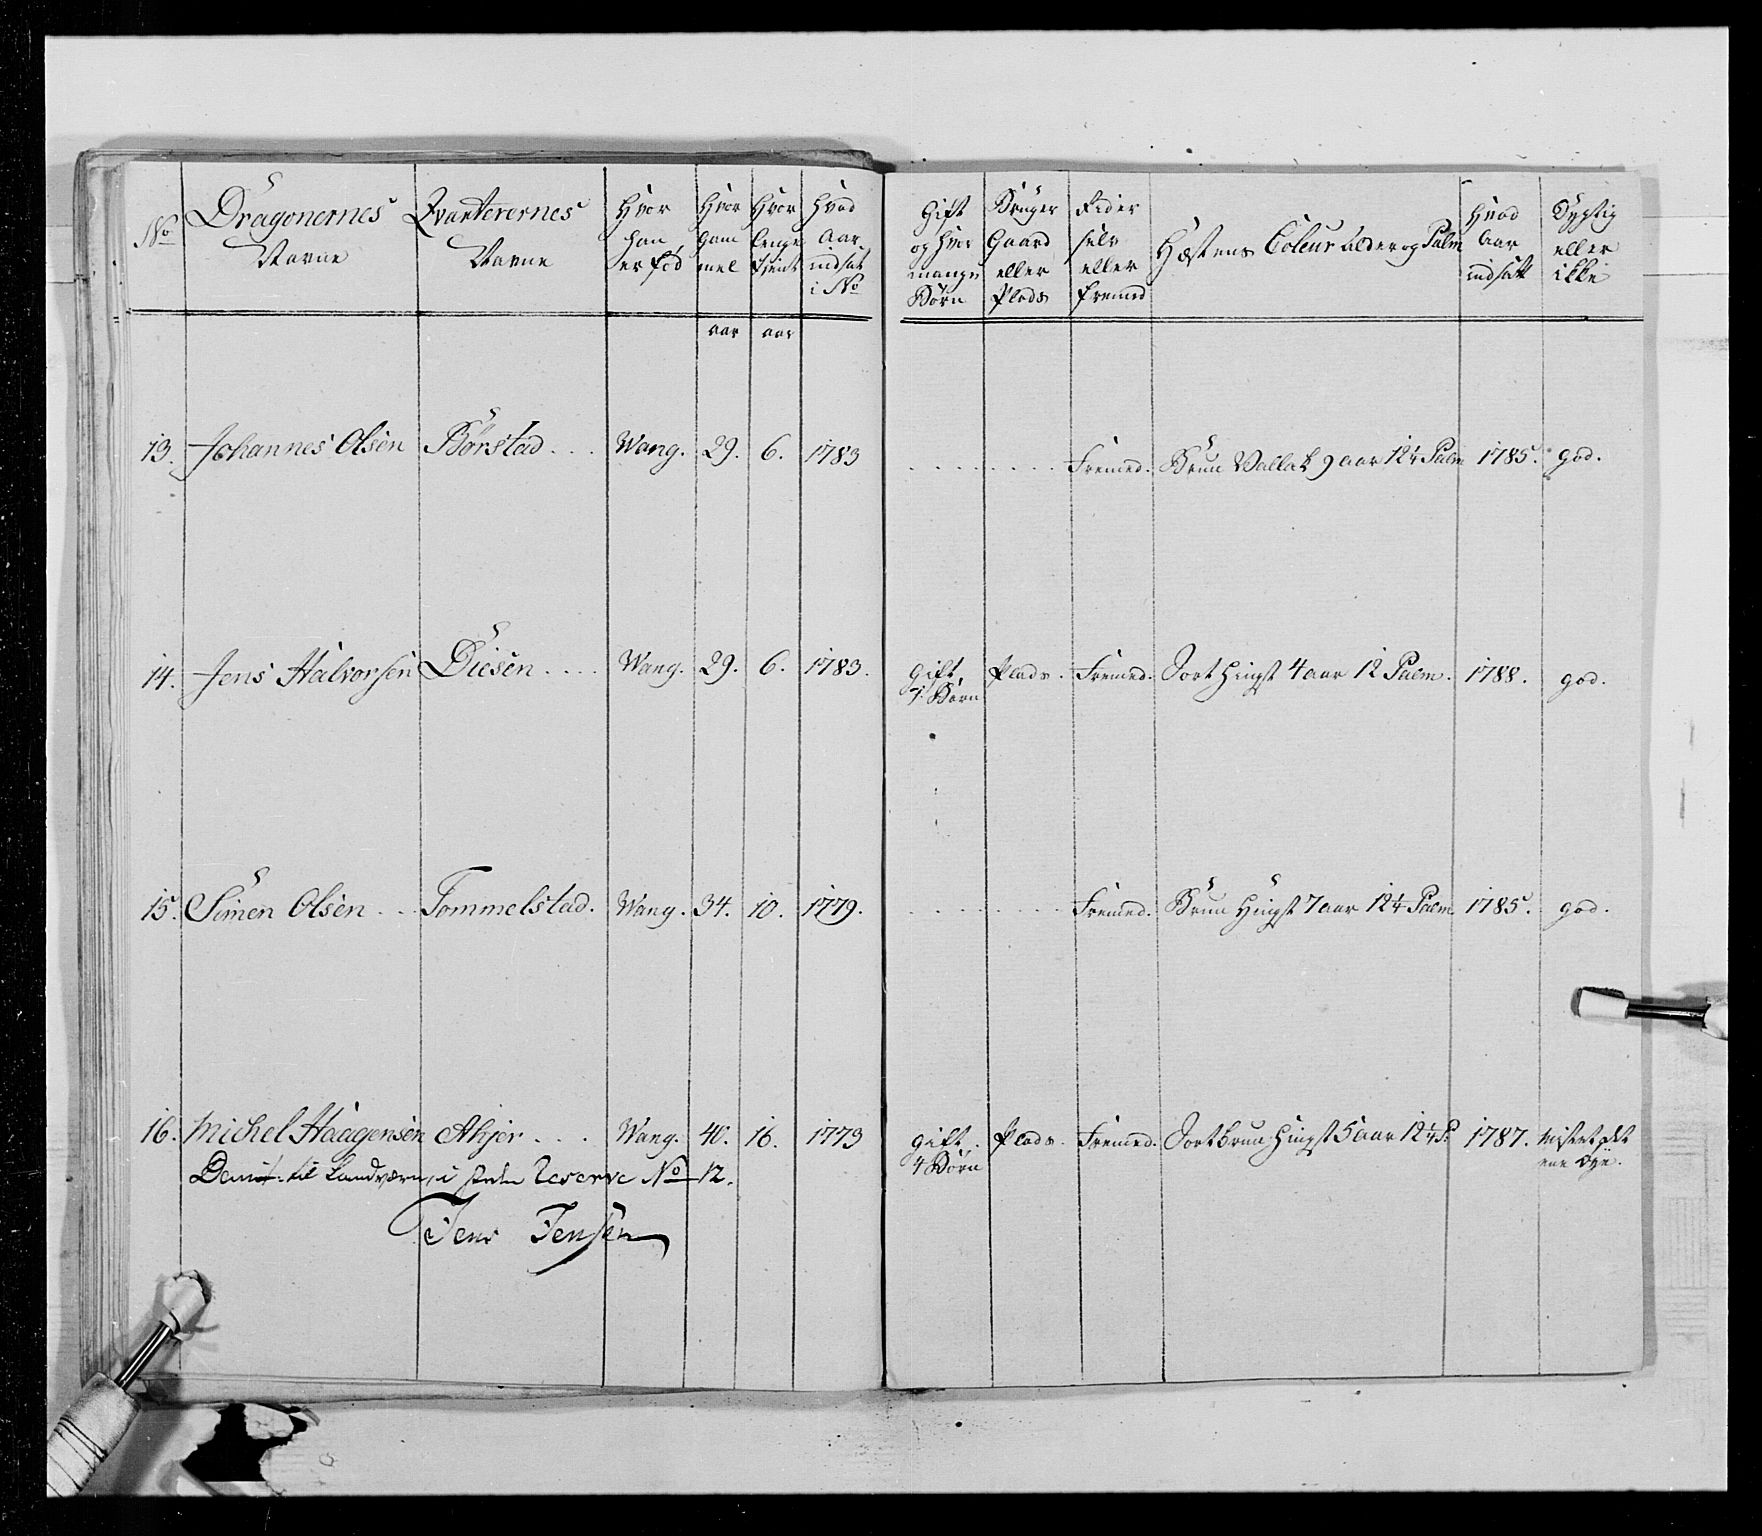 No Dragonernes Navne Qvarterernes Navne Hvor han er fød Hvor gammel Hvor lenge tjent Hvad Aar indsat i No Gift og hvor mange Børn Bruger Gaard eller Plads Eider selv eller fremed Hæstens Coleur alder og Palm Hvad Aar indsatt Dygtig eller ikke
aar aar
13. Johannes Olsen Börstad . . . Wang. 29. 6. 1783 . . . . . . . . Fremed. Brun Vallak 9 aar 12¼ Palm 1785. god.
14. Jens Halvorsen Diesen . . . . Wang. 29. 6. 1783. Gift, Plads. Fremed. Sort Hingst 4 aar 12 Palm. 1788. god.
Børn
15. Simen Olsen . . . Tommelstad. Wang. 34. 10. 1779. . . . . . . . . Fremed. Brun Hingst 7 aar 12¼ Palm 1785. god.
16. Michel Haagensen Akjer . . . Wang. 40. 16. 1773 gift. Plads. Fremed. Sortbrun Hingst 5 aar 12¼ P. 1787. mistet det
4 Børn ene Øye.
Demit. til Landværn, i steden Reserve No 12.
Jens Jensen